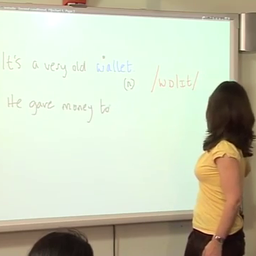 It's a very old wallet /wɒlɪt/
(n)
He gave money to